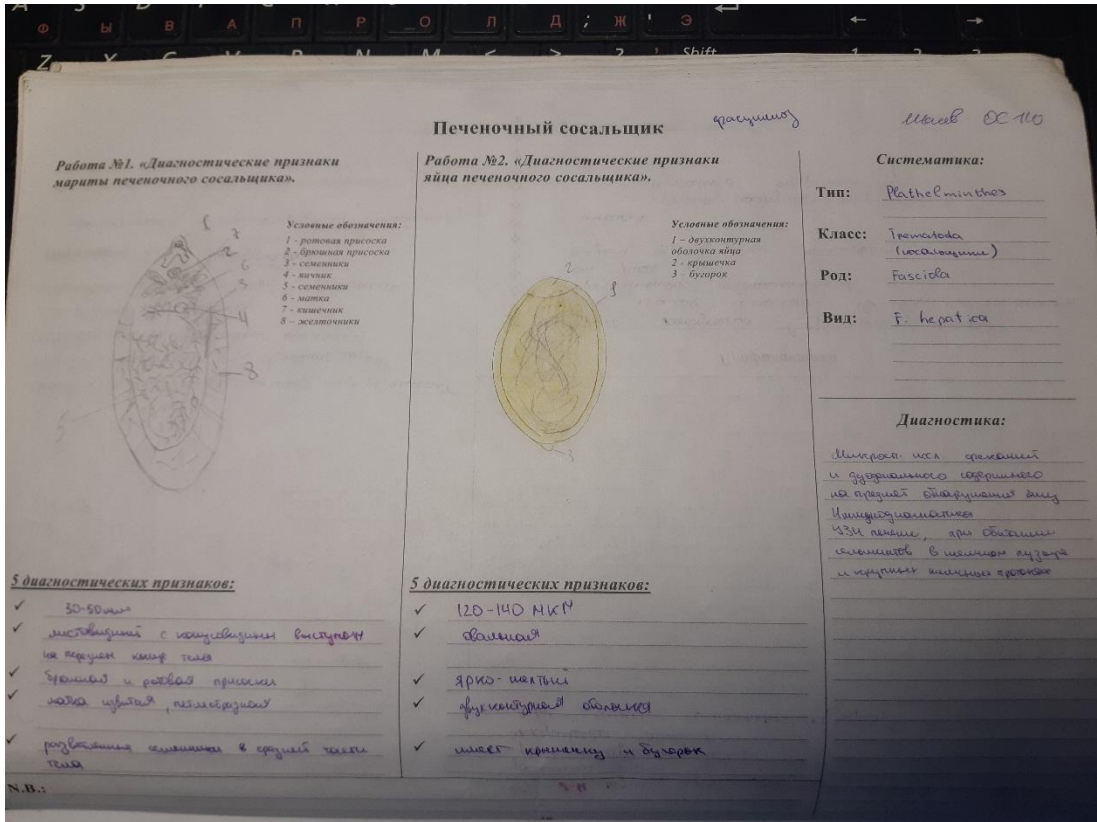 Ф Ы В А П Р О Л Д ; Ж ' Э
Shift
Печеночный сосальщик
фасциолез
ОС 110
Работа №1. «Диагностические признаки
мариты печеночного сосальщика».
1
7
2
6
3
4
8
5
Условные обозначения:
1 - ротовая присоска
2 - брюшная присоска
3 - семенники
4 - яичник
5 - семенники
6 - матка
7 - кишечник
8 – желточники
5 диагностических признаков:
✓ 30-50мм
✓ листовидный с конусовидным выступом
на переднем конце тела
✓ брюшная и ротовая присоски
✓ матка извитая, петлеобразная
✓ разветвленные семенники в средней части
тела
N.B.:
Работа №2. «Диагностические признаки
яйца печеночного сосальщика».
Условные обозначения:
1 – двухконтурная
оболочка яйца
2 - крышечка
3 – бугорок
2
1
3
5 диагностических признаков:
✓ 120-140 МКМ
✓ овальная
✓ ярко-желтый
✓ двухконтурная оболочка
✓ имеет крышечку и бугорок
Систематика:
Тип: Plathelminthes
Класс: Trematoda
(сосальщики)
Род: Fasciola
Вид: F. hepatica
Диагностика:
Микроск. иссл. фекалий
и дуоденального содержимого
на предмет обнаружения яиц
Иммунодиагностика
УЗИ печени, при обитании
гельминтов в желчном пузыре
и крупных желчных протоках